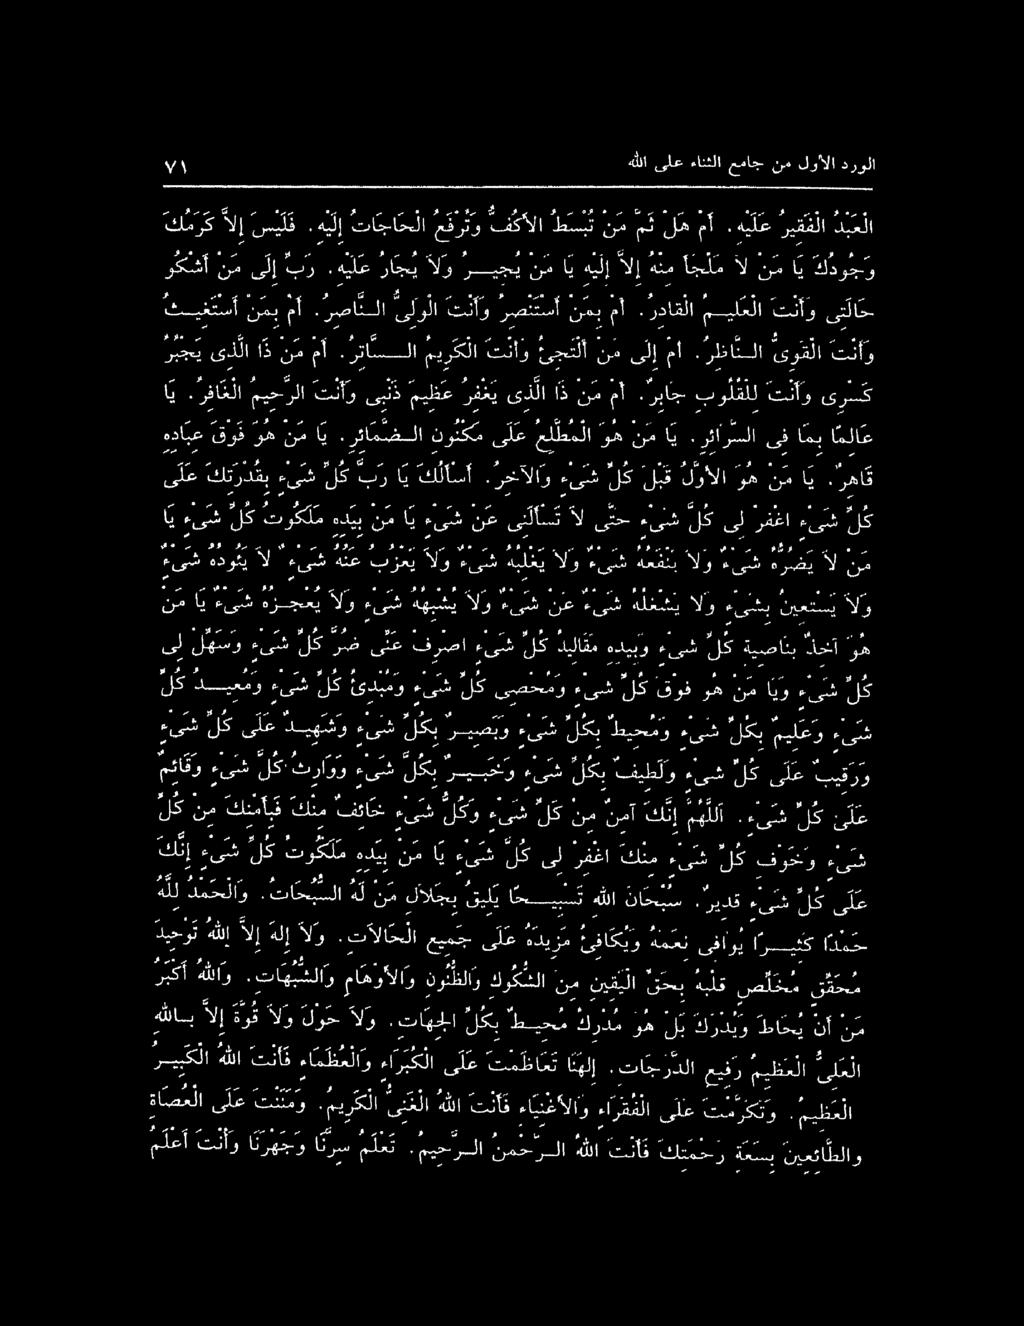 الورد الأول من جامع الثناء على الله ٧١
الْعَبْدُ الْفَقِيرُ عَلَيْهِ. أَمْ هَلْ ثَمَّ مَنْ تُبْسَطُ الأَكُفُّ وَتُرْفَعُ الْحَاجَاتُ إِلَيْهِ. فَلَيْسَ إِلاَّ كَرَمُكَ
وَجُودُكَ يَا مَنْ لاَ مَلْجَأَ مِنْهُ إِلاَّ إِلَيْهِ يَا مَنْ يُجِيــرُ وَلاَ يُجَارُ عَلَيْهِ. رَبِّ إِلَى مَنْ أَشْكُو
حَالَتِى وَأَنْتَ الْعَلِيــمُ الْقَادِرُ. أَمْ بِمَنْ أَسْتَنْصِرُ وَأَنْتَ الْوَلِىُّ الــنَّاصِرُ. أَمْ بِمَنْ أَسْتَغِيــثُ
وَأَنْتَ الْقَوِىُّ الــنَّاظِرُ. أَمْ إِلَى مَنْ أَلْتَجِئُ وَأَنْتَ الْكَرِيمُ الــسَّاتِرُ. أَمْ مَنْ ذَا الَّذِى يَجْبُرُ
كَسْرِى وَأَنْتَ لِلْقُلُوبِ جَابِرٌ. أَمْ مَنْ ذَا الَّذِى يَغْفِرُ عَظِيمَ ذَنْبِى وَأَنْتَ الرَّحِيمُ الْغَافِرُ. يَا
عَالِمًا بِمَا فِى السَّرَائِرِ. يَا مَنْ هُوَ الْمُطَّلِعُ عَلَى مَكْنُونِ الــضَّمَائِرِ. يَا مَنْ هُوَ فَوْقَ عِبَادِهِ
قَاهِرٌ. يَا مَنْ هُوَ الأَوَّلُ قَبْلَ كُلِّ شَىْءٍ وَالآخِرُ. أَسْأَلُكَ يَا رَبَّ كُلِّ شَىْءٍ بِقُدْرَتِكَ عَلَى
كُلِّ شَىْءٍ اغْفِرْ لِى كُلَّ شَىْءٍ حَتَّى لاَ تَسْأَلَنِى عَنْ شَىْءٍ يَا مَنْ بِيَدِهِ مَلَكُوتُ كُلِّ شَىْءٍ يَا
مَنْ لاَ يَضُرُّهُ شَىْءٌ وَلاَ يَنْفَعُهُ شَىْءٌ وَلاَ يَغْلِبُهُ شَىْءٌ وَلاَ يَعْزُبُ عَنْهُ شَىْءٌ لاَ يَئُودُهُ شَىْءٌ
وَلاَ يَسْتَعِينُ بِشَىْءٍ وَلاَ يَشْغَلُهُ شَىْءٌ عَنْ شَىْءٍ وَلاَ يُشْبِهُهُ شَىْءٌ وَلاَ يُعْجِـزُهُ شَىْءٌ يَا مَنْ
هُوَ آخِذٌ بِنَاصِيَةِ كُلِّ شَىْءٍ وَبِيَدِهِ مَقَالِيدُ كُلِّ شَىْءٍ اصْرِفْ عَنِّى ضُرَّ كُلِّ شَىْءٍ وَسَهِّلْ لِى
كُلَّ شَىْءٍ وَيَا مَنْ هُوَ فَوْقَ كُلِّ شَىْءٍ وَمُحْصِى كُلِّ شَىْءٍ وَمُبْدِئُ كُلِّ شَىْءٍ وَمُعِيــدُ كُلِّ
شَىْءٍ وَعَلِيمٌ بِكُلِّ شَىْءٍ وَمُحِيطٌ بِكُلِّ شَىْءٍ وَبَصِيــرٌ بِكُلِّ شَىْءٍ وَشَهِيــدٌ عَلَى كُلِّ شَىْءٍ
وَرَقِيبٌ عَلَى كُلِّ شَىْءٍ وَلَطِيفٌ بِكُلِّ شَىْءٍ وَخَبِيــرٌ بِكُلِّ شَىْءٍ وَوَارِثُ كُلِّ شَىْءٍ وَقَائِمٌ
عَلَى كُلِّ شَىْءٍ. اَللَّهُمَّ إِنَّكَ آمِنٌ مِنْ كُلِّ شَىْءٍ وَكُلُّ شَىْءٍ خَائِفٌ مِنْكَ فَبِأَمْنِكَ مِنْ كُلِّ
شَىْءٍ وَخَوْفِ كُلِّ شَىْءٍ مِنْكَ اغْفِرْ لِى كُلَّ شَىْءٍ يَا مَنْ بِيَدِهِ مَلَكُوتُ كُلِّ شَىْءٍ إِنَّكَ
عَلَى كُلِّ شَىْءٍ قَدِيرٌ. سُبْحَانَ اللهِ تَسْبِيــحًا يَلِيقُ بِجَلاَلِ مَنْ لَهُ السُّبُحَاتُ. وَالْحَمْدُ لِلَّهِ
حَمْدًا كَثِيــرًا يُوَافِى نِعَمَهُ وَيُكَافِئُ مَزِيدَهُ عَلَى جَمِيعِ الْحَالاَتِ. وَلاَ إِلهَ إِلاَّ اللهُ تَوْحِيدَ
مُحَقِّقٍ مُخَلِّصٍ قَلْبَهُ بِحَقِّ الْيَقِينِ مِنَ الشُّكُوكِ وَالظُّنُونِ وَالأَوْهَامِ وَالشُّبُهَاتِ. وَاللهُ أَكْبَرُ
مِنْ أَنْ يُحَاطَ وَيُدْرَكَ بَلْ هُوَ مُدْرِكٌ مُحِيــطٌ بِكُلِّ الْجِهَاتِ. وَلاَ حَوْلَ وَلاَ قُوَّةَ إِلاَّ بِــاللهِ
الْعَلِىِّ الْعَظِيمِ رَفِيعِ الدَّرَجَاتِ. إِلهَنَا تَعَاظَمْتَ عَلَى الْكُبَرَاءِ وَالْعُظَمَاءِ فَأَنْتَ اللهُ الْكَبِيــرُ
الْعَظِيمُ. وَتَكَرَّمْتَ عَلَى الْفُقَرَاءِ وَالأَغْنِيَاءِ فَأَنْتَ اللهُ الْغَنِىُّ الْكَرِيمُ. وَمَنَنْتَ عَلَى الْعُصَاةِ
وَالطَّائِعِينَ بِسَعَةِ رَحْمَتِكَ فَأَنْتَ اللهُ الــرَّحْمنُ الــرَّحِيمُ. تَعْلَمُ سِرَّنَا وَجَهْرَنَا وَأَنْتَ أَعْلَمُ